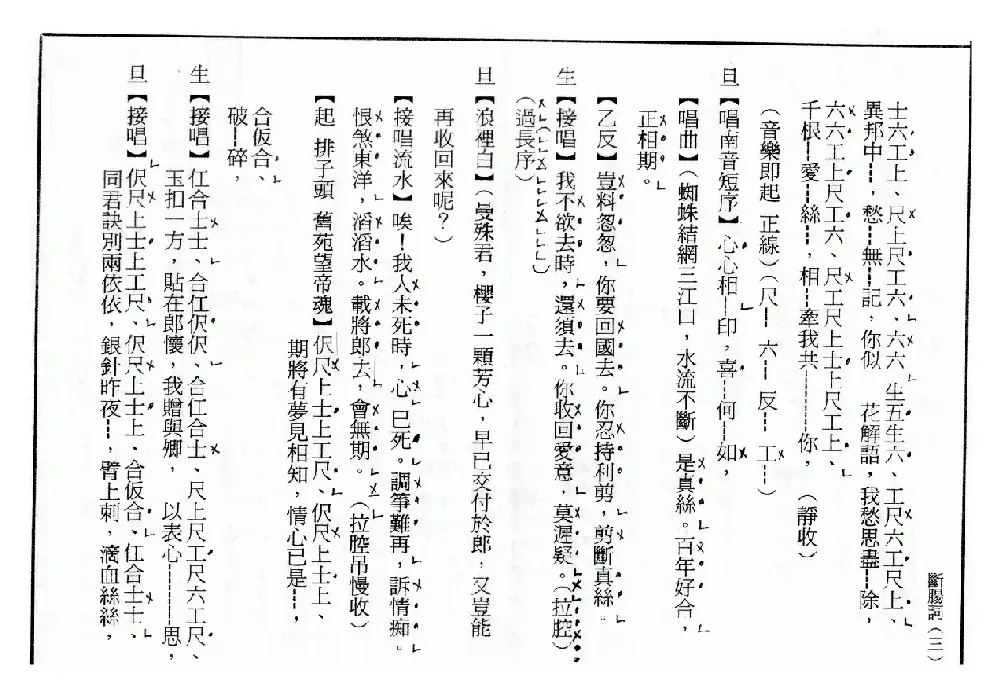 斷腸詞（三）
士六工上、尺上尺工六、六六 生五生六、工尺六工尺上、
異邦中┄，愁┄無┄記，你似 花解語，我愁思盡┄除，
六六工上尺工六、尺工尺上士上尺工上、
千根┄愛┄絲┄，相┄牽我共┄┄┄你， （靜收）
（音樂即起 正線）（尺┄ 六┄ 反┄ 工┄）
旦【唱南音短序】心心相┄印，喜┄何┄如，
【唱曲】（蜘蛛結網三江口，水流不斷）是真絲。百年好合，
正相期。
【乙反】豈料怱怱，你要回國去。你忍持利剪，剪斷真絲。
生【接唱】我不欲去時，還須去。你收回愛意，莫遲疑。（拉腔）
（過長序）
旦【浪裡白】（曼殊君，櫻子一顆芳心，早已交付於郎，又豈能
再收回來呢？）
【接唱流水】唉！我人未死時，心已死。調箏難再，訴情痴。
恨煞東洋，滔滔水。載將郎去，會無期。（拉腔吊慢收）
【起 排子頭 舊苑望帝魂】伬尺上士上工尺、伬尺上士上、
期將有夢見相知，情心已是┄，
合仮合、
破┄碎，
生【接唱】仜合士士、合仜伬伬、合仜合士、尺上尺工尺六工尺、
玉扣一方，貼在郎懷，我贈與卿， 以表心┄┄┄思，
旦【接唱】伬尺上士上工尺、伬尺上士上、合仮合、仜合士士、
同君訣別兩依依，銀針昨夜┄，臂上刺，滴血絲絲，